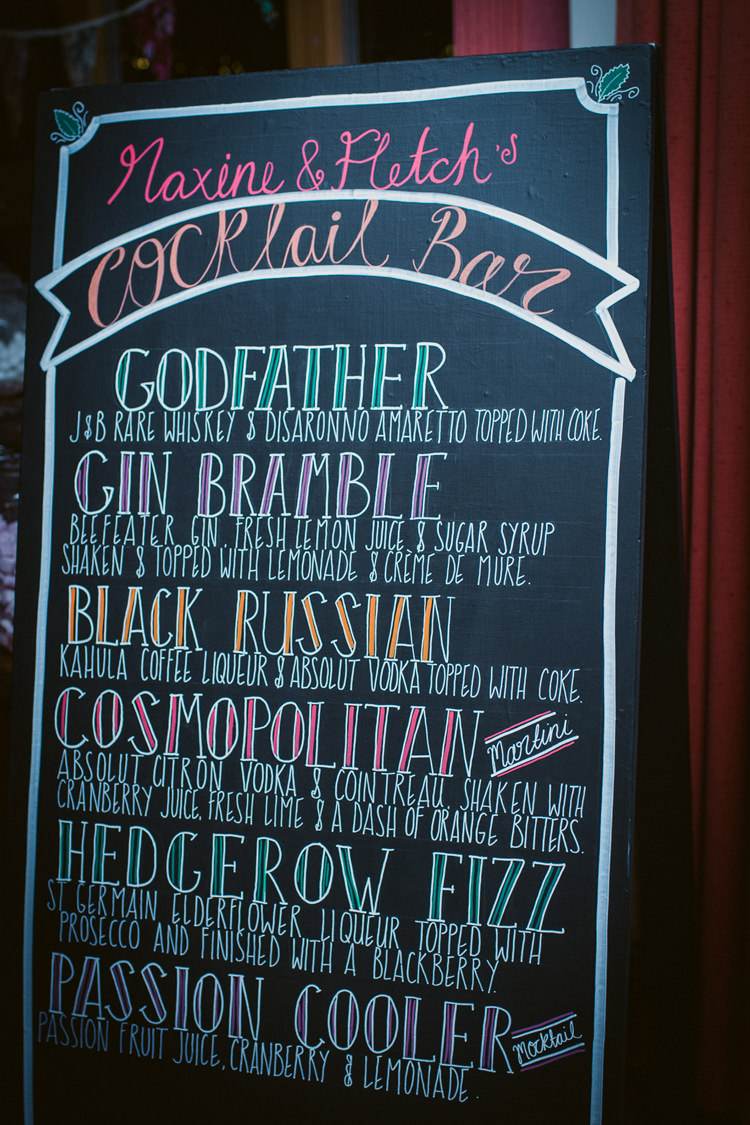 Maxine & Fletch's
Cocktail Bar
GODFATHER
J&B RARE WHISKEY & DISARONNO AMARETTO TOPPED WITH COKE.
GIN BRAMBLE
BEEFEATER GIN, FRESH LEMON JUICE & SUGAR SYRUP
SHAKEN & TOPPED WITH LEMONADE & CRÈME DE MURE.
BLACK RUSSIAN
KAHULA COFFEE LIQUEUR & ABSOLUT VODKA TOPPED WITH COKE.
COSMOPOLITAN Martini
ABSOLUT CITRON VODKA & COINTREAU, SHAKEN WITH
CRANBERRY JUICE, FRESH LIME & A DASH OF ORANGE BITTERS.
HEDGEROW FIZZ
ST GERMAIN ELDERFLOWER LIQUEUR TOPPED WITH
PROSECCO AND FINISHED WITH A BLACKBERRY.
PASSION COOLER Mocktail
PASSION FRUIT JUICE, CRANBERRY & LEMONADE.